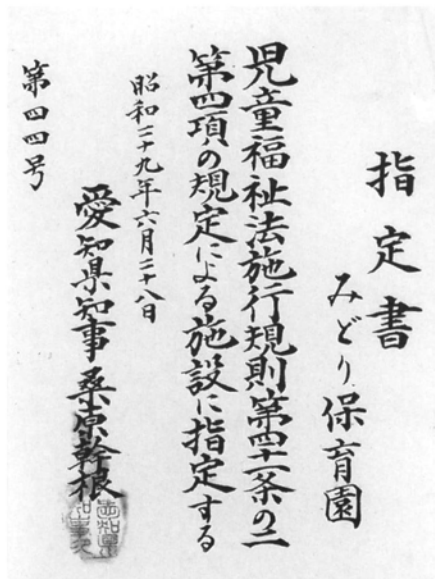 指定書
みどり保育園
児童福祉法施行規則第四十一条の二
第四項の規定による施設に指定する
昭和二十九年六月二十八日
愛知県知事桑原幹根
第四四号